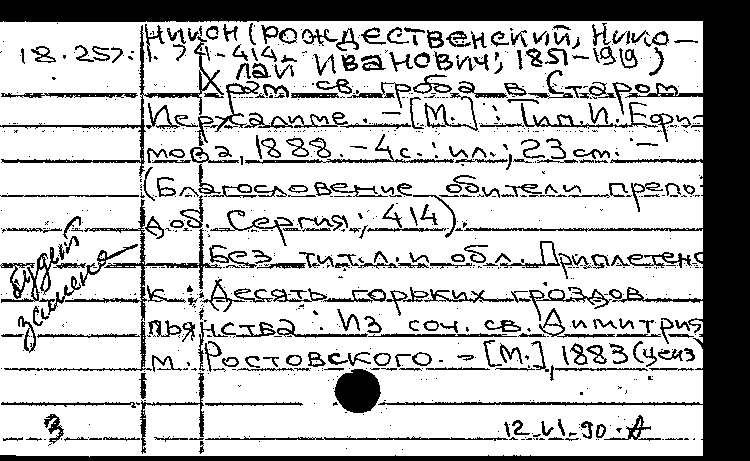 НИКОН (РОЖДЕСТВЕНСКИЙ, НИКО-
18.257:1. 74-414. ЛАЙ ИВАНОВИЧ; 1851-1919)
Храм св. гроба в Старом
Иерусалиме. - [М.] : Тип. И. Ефи-
мова, 1888. - 4 с. : ил. ; 23 см. -
(Благословение обители препо-
доб. Сергия ; 414).
Без тит. л. и обл. Приплетено
к : Десять горьких гроздов
пьянства : Из соч. св. Димитрия
м. Ростовского. - [М.], 1883 (ценз)
будет
замена
3
12.VI.90.